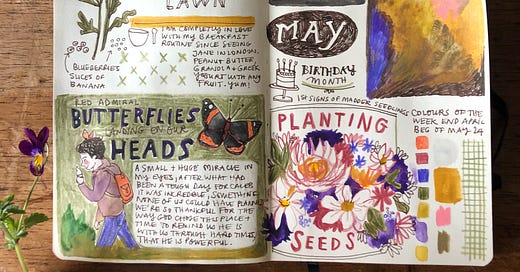 LAWN
I AM COMPLETELY IN LOVE
WITH MY BREAKFAST
ROUTINE SINCE SEEING
JANE IN LONDON.
PEANUT BUTTER,
GRANOLA + GREEK
YOGURT WITH ANY
FRUIT. YUM!
BLUEBERRIES
SLICES OF
BANANA
RED ADMIRAL
BUTTERFLIES
LANDING ON OUR
HEADS
A SMALL + HUGE MIRACLE IN
MY EYES, AFTER WHAT HAD
BEEN A TOUGH DAY FOR CALEB
IT WAS INCREDIBLE, SOMETHING
NONE OF US COULD HAVE PLANNED
WE'RE SO THANKFUL FOR THE
WAY GOD CHOSE THIS PLACE +
TIME TO REMIND US HE IS
WITH US THROUGH HARD TIMES,
THAT HE IS POWERFUL.
MAY
BIRTHDAY
MONTH
1ST SIGNS OF MADDER SEEDLINGS
PLANTING
SEEDS
COLOURS OF THE
WEEK END APRIL
BEG OF MAY 24